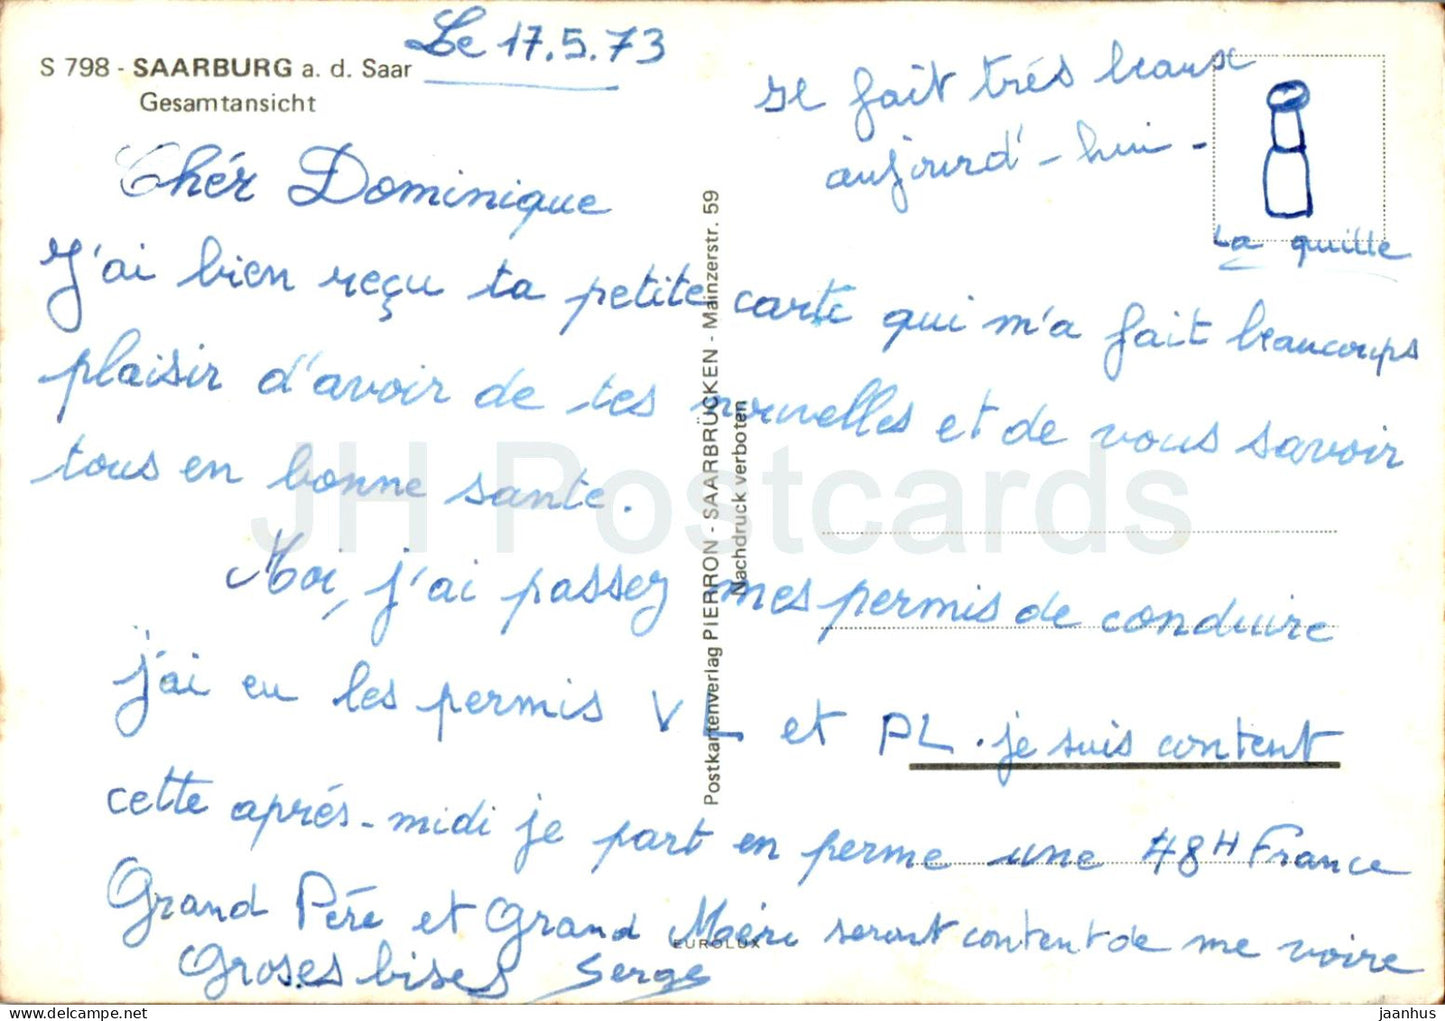 S 798 - SAARBURG a. d. Saar
Gesamtansicht
Le 17.5.73
il fait très beaux
aujourd'-hui -
La quille
Chér Dominique
J'ai bien reçu ta petite carte qui m'a fait beaucoups
plaisir d'avoir de tes nouvelles et de vous savoir
tous en bonne sante.
Moi, j'ai passez mes permis de conduire
j'ai eu les permis VL et PL. je suis content
cette aprés-midi je part en perme une 48H France
Grand Pére et Grand Maéri seront content de me voire
Groses bises Serge
Postkartenverlag PIERRON - SAARBRÜCKEN - Mainzerstr. 59
Nachdruck verboten
EUROLUX
JH Postcards
jaanhus
delcampe.net